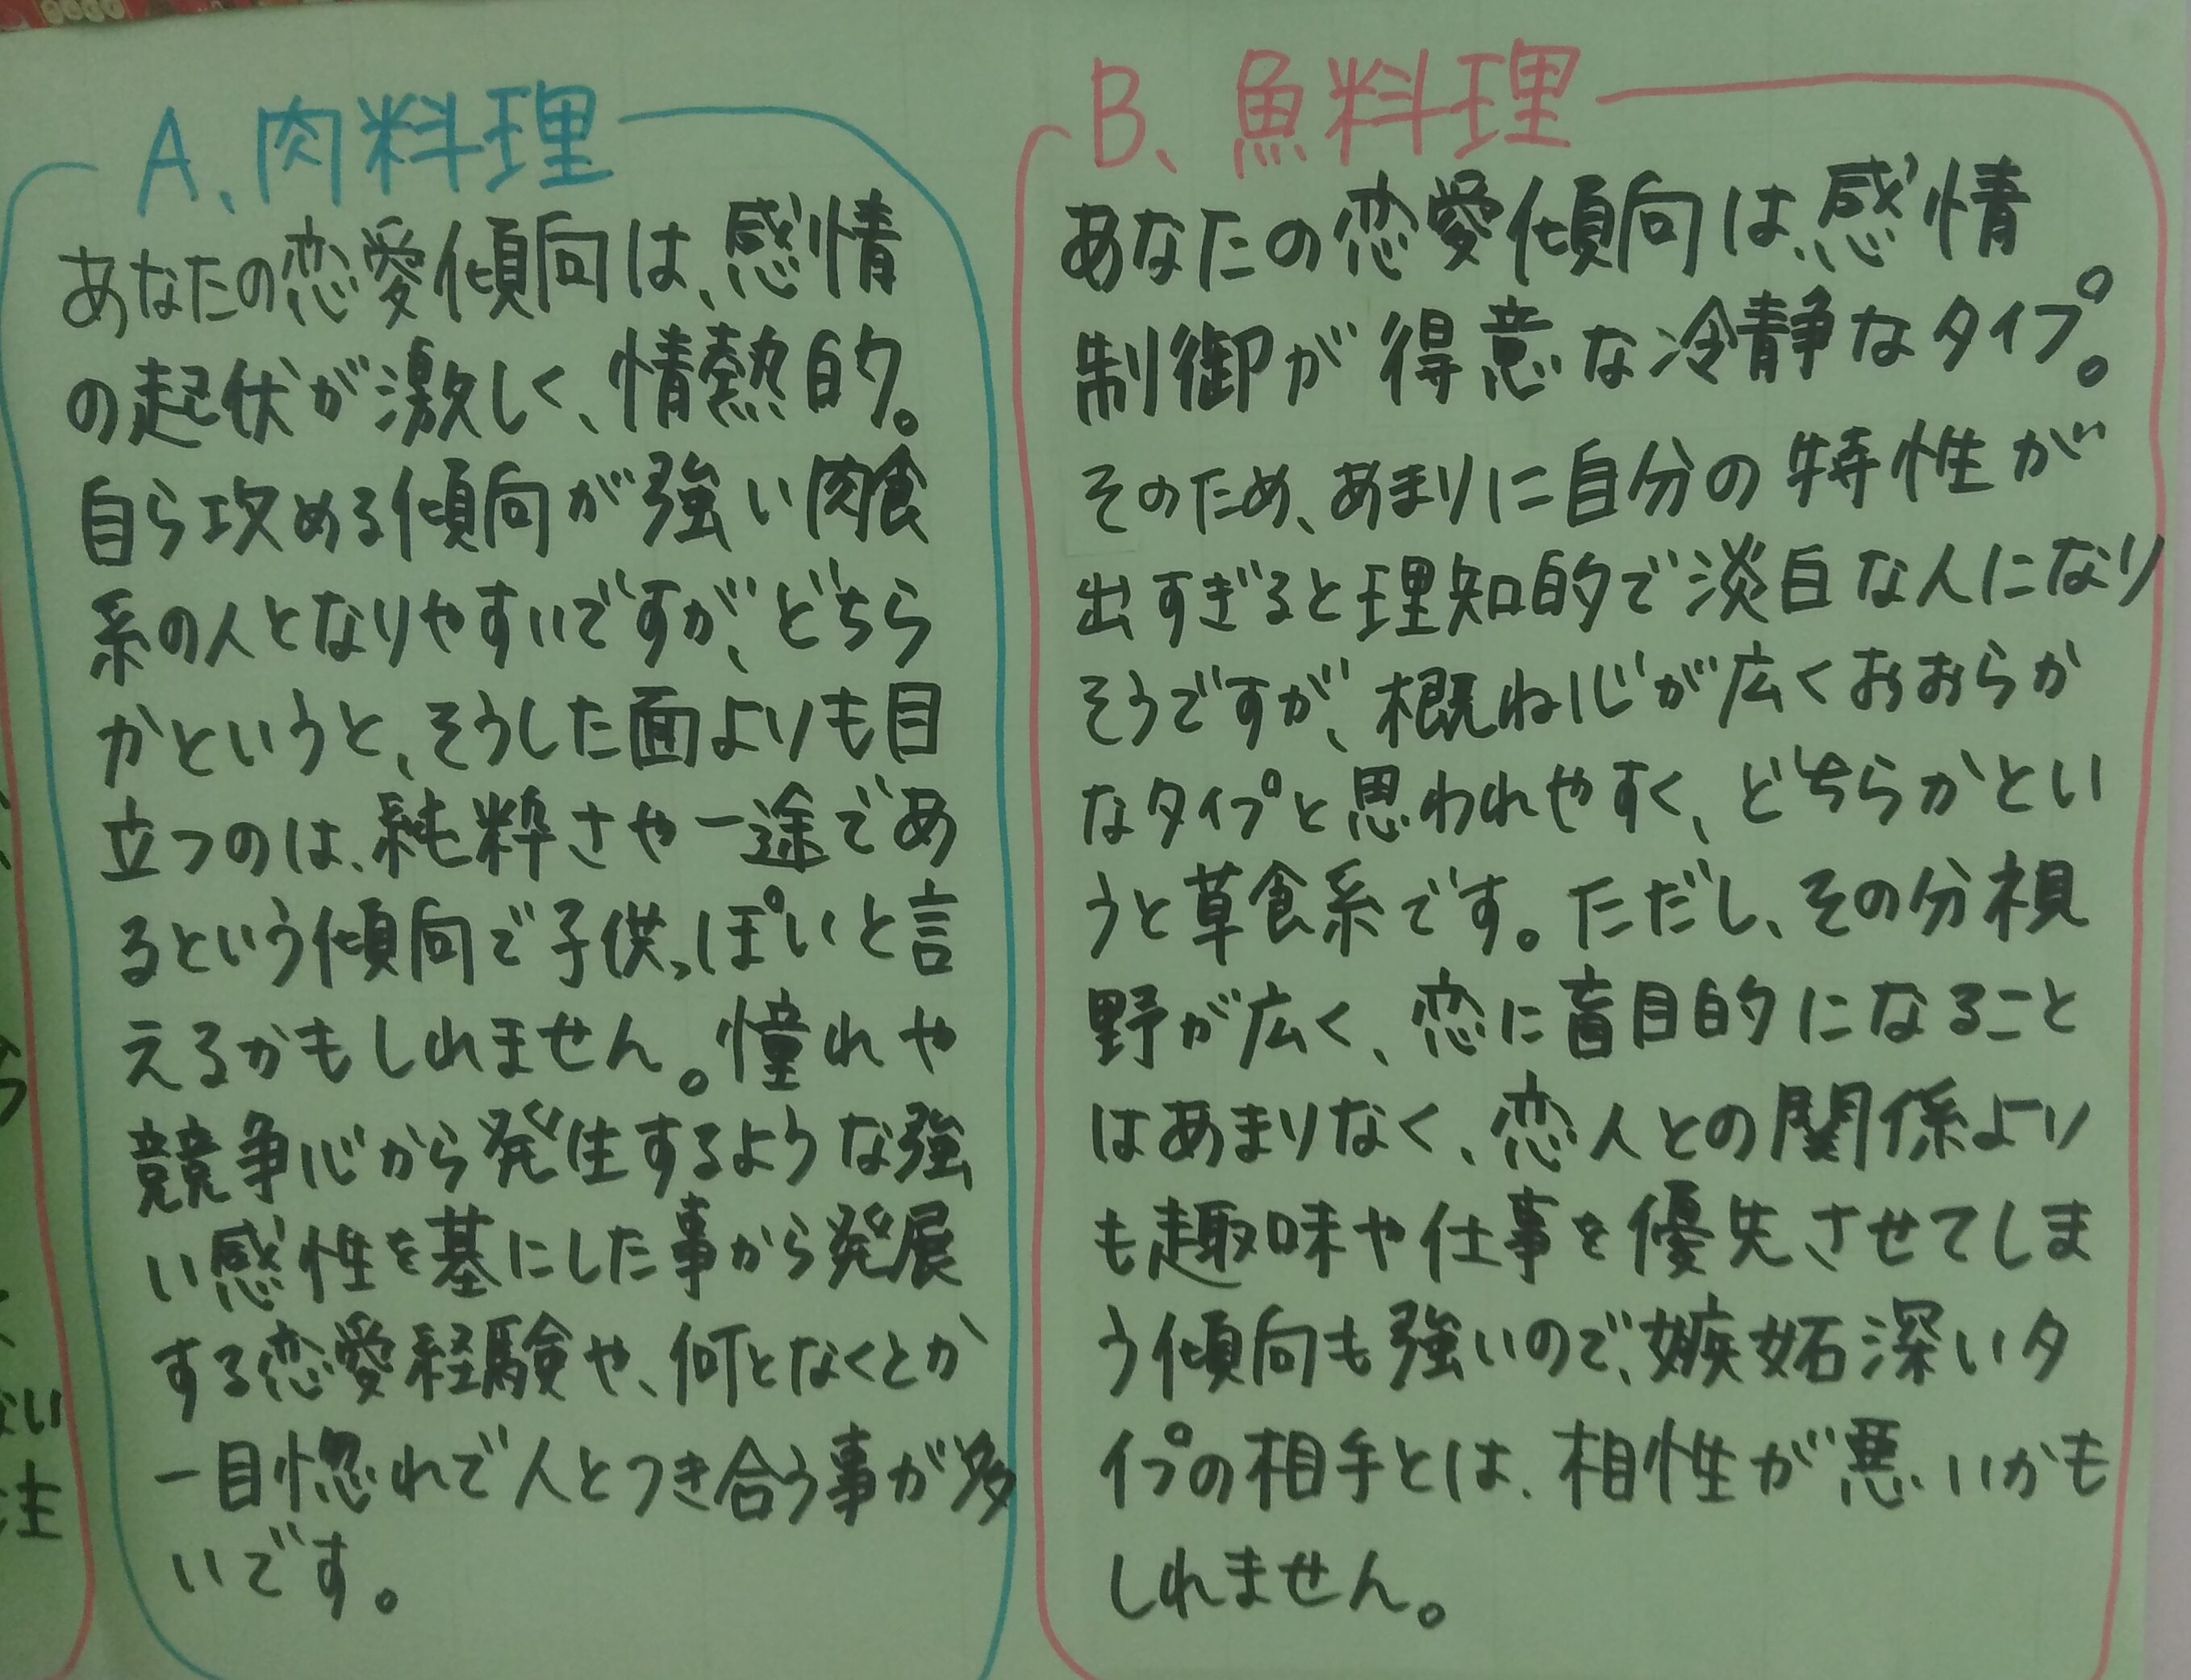 A、肉料理
あなたの恋愛傾向は、感情
の起伏が激しく、情熱的。
自ら攻める傾向が強い肉食
系の人となりやすいですが、どちら
かというと、そうした面よりも目
立つのは、純粋さや一途であ
るという傾向で子供っぽいと言
えるかもしれません。憧れや
競争心から発生するような強
い感性を基にした事から発展
する恋愛経験や、何となくとか
一目惚れで人とつき合う事が多
いです。
B、魚料理
あなたの恋愛傾向は、感情
制御が得意な冷静なタイプ。
そのため、あまりに自分の特性が
出すぎると理知的で淡白な人になり
そうですが、概ね心が広くおおらか
なタイプと思われやすく、どちらかとい
うと草食系です。ただし、その分視
野が広く、恋に盲目的になること
はあまりなく、恋人との関係より
も趣味や仕事を優先させてしま
う傾向も強いので、嫉妬深いタ
イプの相手とは、相性が悪いかも
しれません。
ない
注